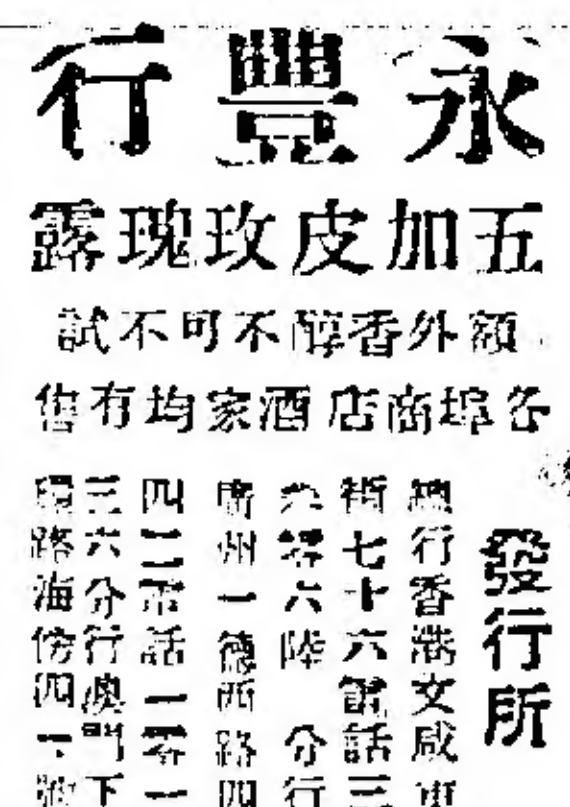 永豐行
五加皮玫瑰露
額外香醇不可不試
各埠商店酒家均有售
發行所
總行香港文咸東
街七十六號電話三
零六陸 分行
廣州一德西路四
四二電話一零一
三六分行澳門下
環路海傍四一號